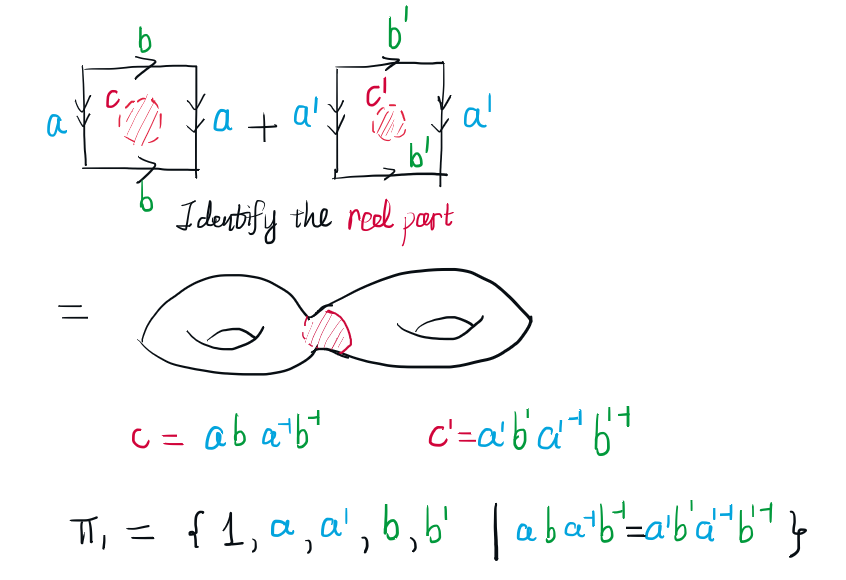 b b'
c c'
a a + a' a'
b b'
Identify the reel part
=
c = a b a⁻¹ b⁻¹ c' = a' b' a'⁻¹ b'⁻¹
π₁ = { 1, a, a', b, b' | a b a⁻¹ b⁻¹ = a' b' a'⁻¹ b'⁻¹ }